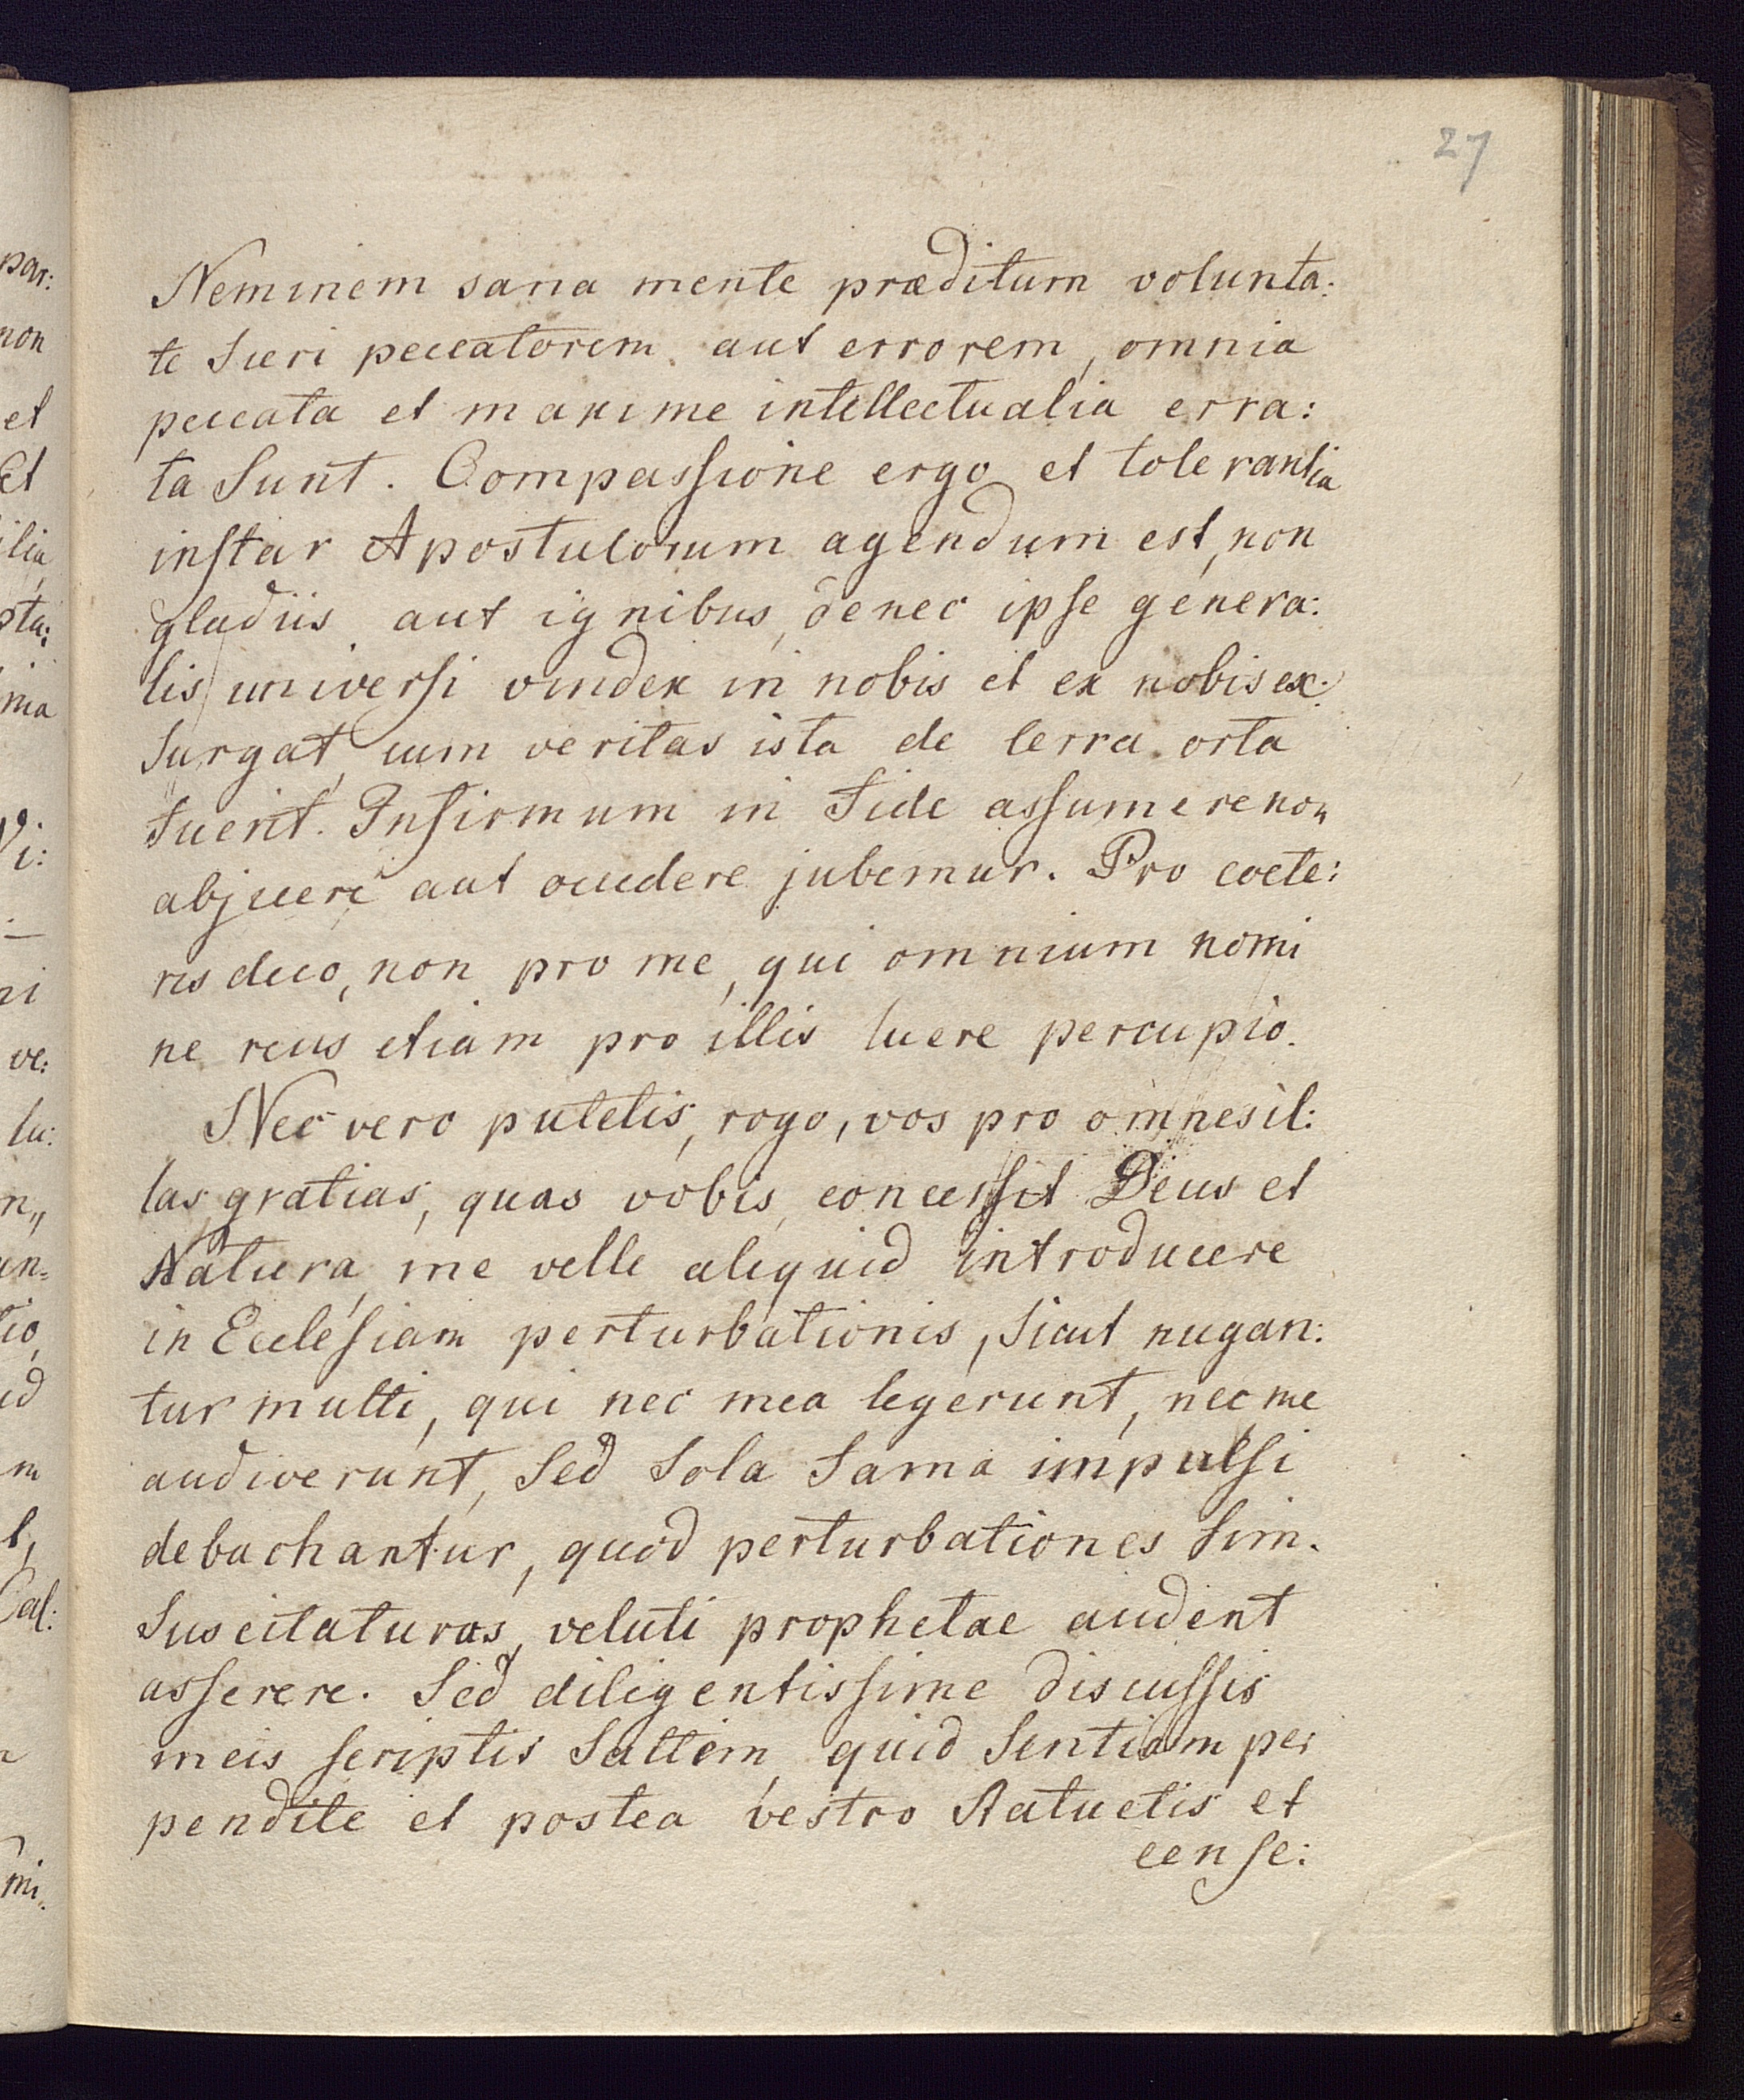 27
Neminem sana mente præditum volunta:
te fieri peccatorem aut errorem, omnia
peccata et maxime intellectualia erra:
ta sunt. Compassione ergo et tolerantia
instar Apostulorum agendum est, non
gladiis aut ignibus, denec ipse genera:
lis universi vindex in nobis et ex nobis ex:
surgat, cum veritas ista de terra orta
fuerit. Infirmum in fide assumere non
abjicere aut occidere jubemur. Pro coete:
ris dico, non pro me, qui omnium nomi
ne reus etiam pro illis luere percupio.
Nec vero putetis, rogo, vos pro omnes il:
las gratias, quas vobis concessit Deus et
Natura, me velle aliquid introducere
in Ecclesiam perturbationis, sicut nugan:
tur multi, qui nec mea legerunt, nec me
audiverunt, sed sola fama impulsi
debachantur, quod perturbationes sim.
suscitaturos, veluti prophetae audent
asserere. Sed diligentissime discussis
meis scriptis saltem, quid sentiam per
pendite et postea vestro statuetis et
cense:
par:
non
et
Et
ilia
ma
Vi:
ni
ve:
lu:
n,,
en=
tio,
id
m
t,
Cal:
mi